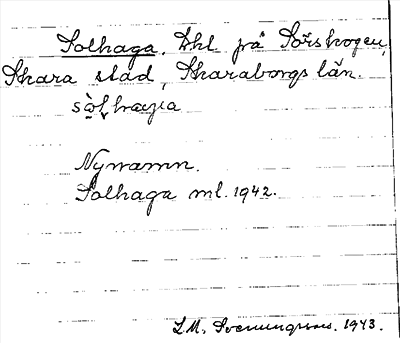 Solhaga, Lht på Sörskogen,
Skara stad, Skaraborgs län.
sòl haga
Nynamn.
Solhaga ml. 1942.
L.M. Svenungsson. 1943.